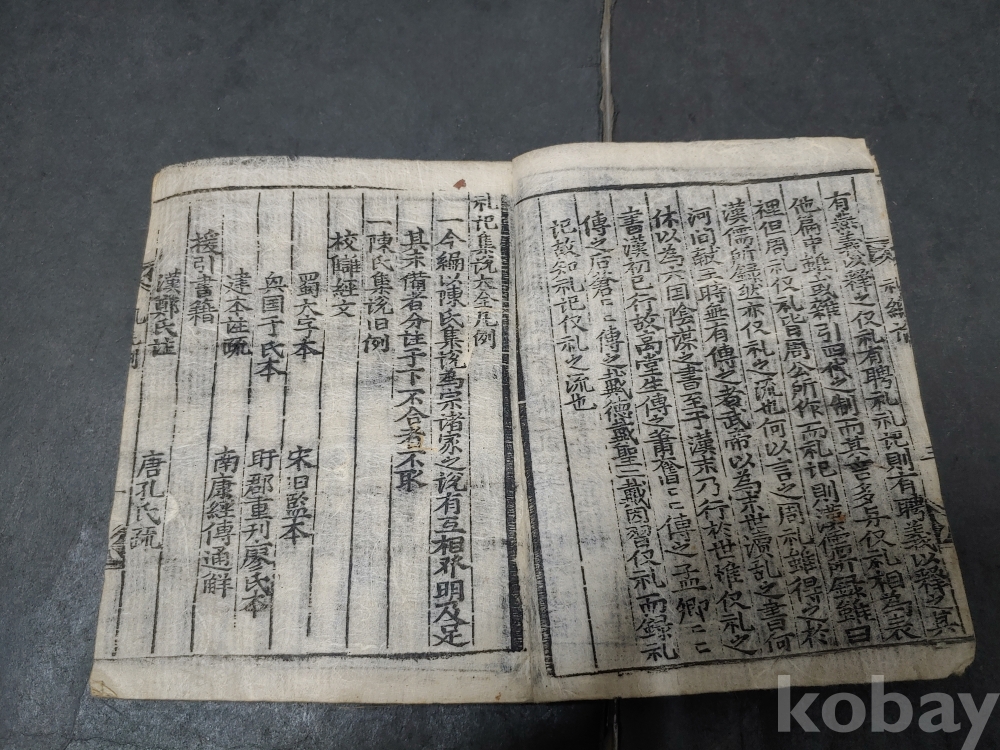 有燕義以釋之仪礼有聘礼礼記則有聘義以釋之其
他篇中雖或雜引四代之制而其言多与仪礼相為表
裡但周礼仪礼皆周公所作而礼記則漢儒所録雖曰
漢儒所録然亦仪礼之流也何以言之周礼雖得之於
河间献王時無有傳之者武帝以為末世瀆乱之書何
休以為六国陰謀之書至于漢末乃行於世惟仪礼之
書漢初已行故高堂生傳之萧奮奮傳之孟卿卿
傳之后蒼蒼傳之戴德戴聖二戴因習仪礼而録礼
記故知礼記仪礼之流也
礼記集说大全凡例
一今編以陳氏集说為宗诸家之说有互相发明及足
其未備者分註于下不合者不取
一陳氏集说旧例
校讎經文
蜀大字本 宋旧監本
兴国于氏本 盱郡重刊廖氏本
建本註疏 南康經傳通解
援引書籍
漢鄭氏註 唐孔氏疏
礼 凡例
kobay